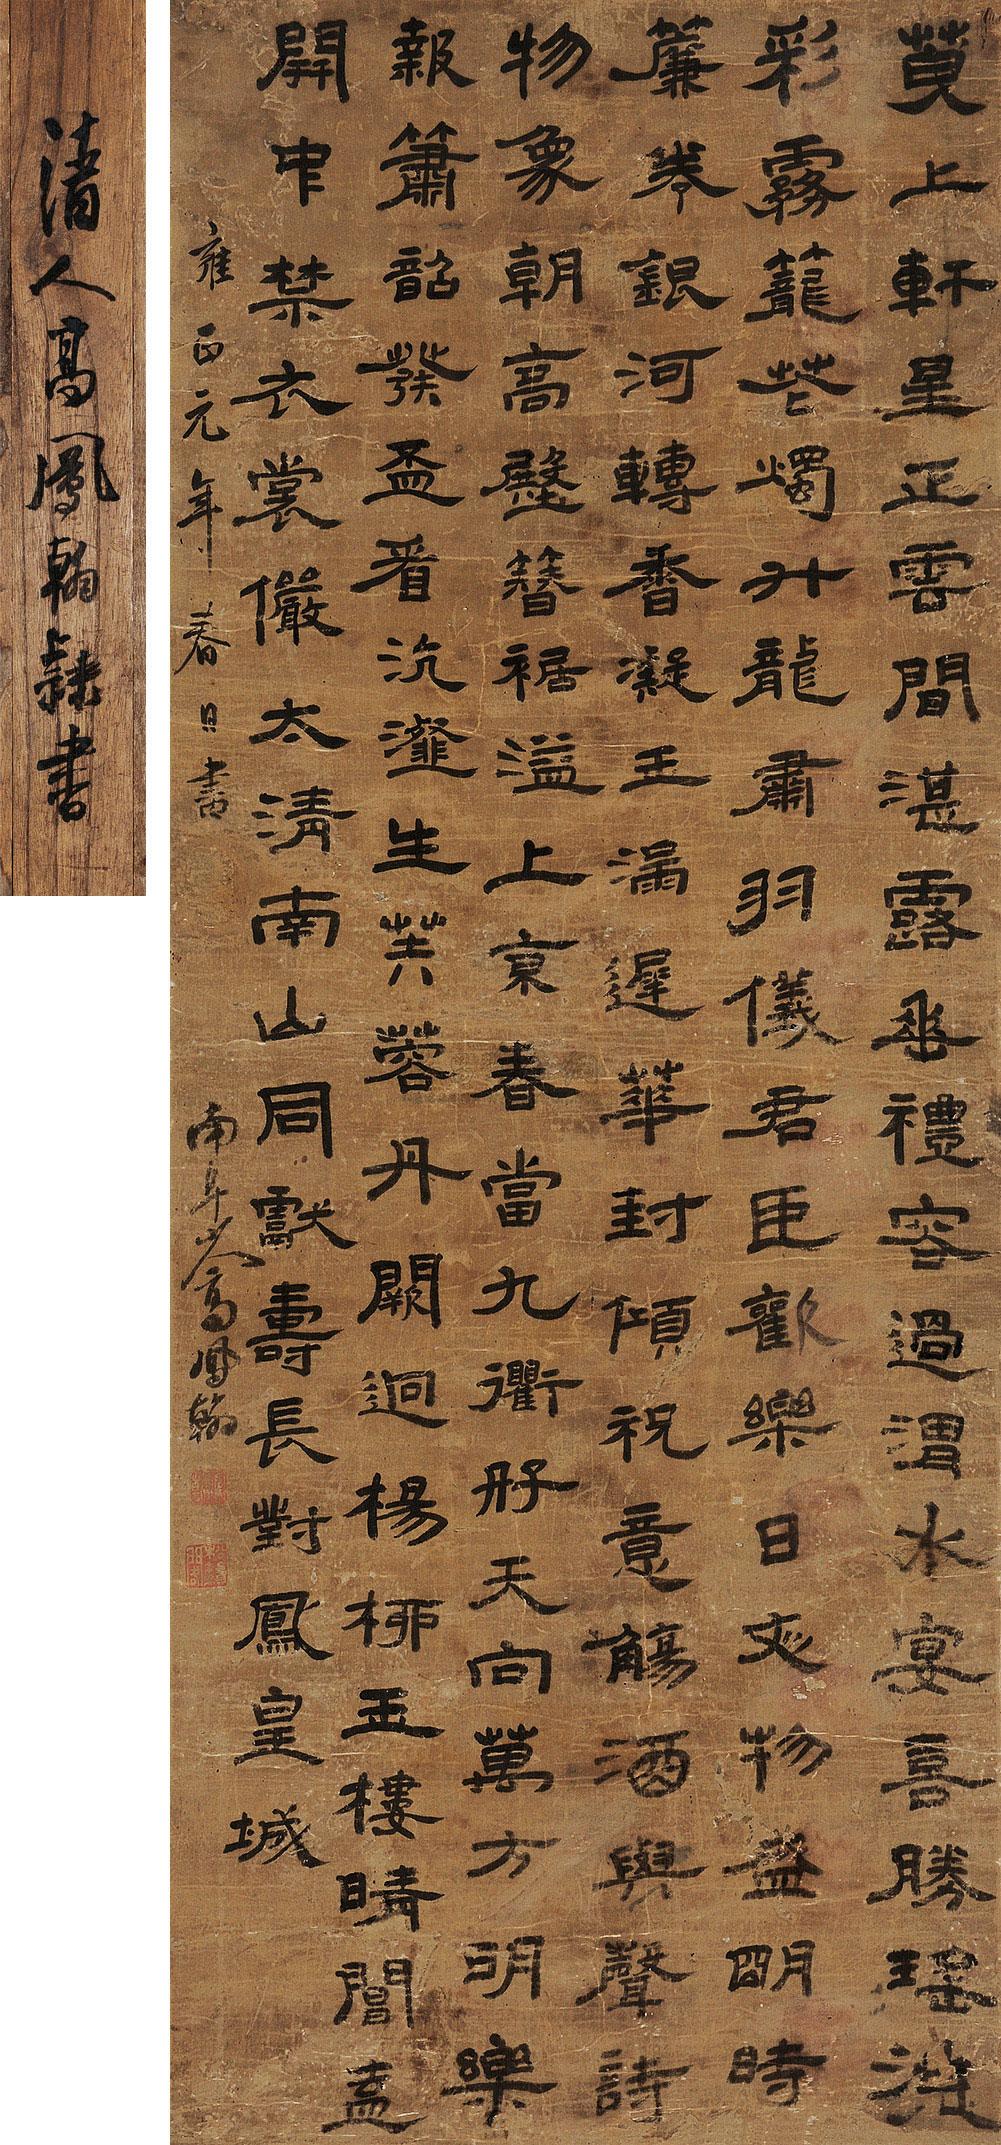 莫上軒星正雲間湛露垂禮容過渭水宴喜勝瑤池
彩霧籠花燭升龍肅羽儀君臣歡樂日文物盛明時
簾卷銀河轉香凝玉漏遲華封傾祝意觴酒與聲詩
物象朝高殿簪裾溢上京春當九衢好天向萬方明樂
報簫韶發盃看沆瀣生芙蓉丹闕迥楊柳玉樓晴閶蓋
開中禁衣裳儼太清南山同獻壽長對鳳皇城
雍正元年春日書
南阜山人高鳳翰
清人高鳳翰隸書